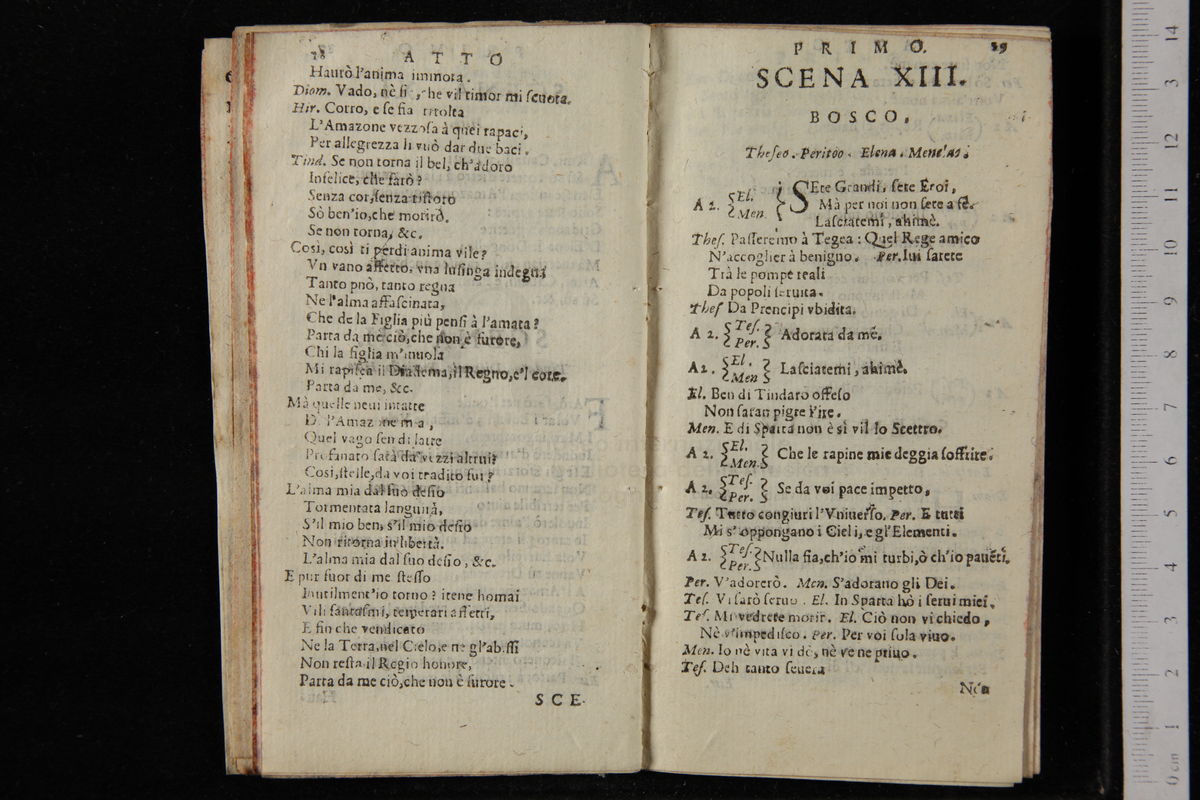 28 ATTO
Haurò l'anima immota.
Diom. Vado, nè fi , che vil timor mi ſcuota.
Hir. Corro, e ſe ſia ritolta
L'Amazone vezzoſa à quei rapaci,
Per allegrezza li vuò dar due baci.
Tind. Se non torna il bel, ch'adoro
Infelice, che farò?
Senza cor, ſenza riſtoro
Sò ben'io, che morirò.
Se non torna, &c.
Così, così ti perdi anima vile?
Vn vano affetto, vna luſinga indegna
Tanto può, tanto regna
Ne l'alma affaſcinata,
Che de la Figlia più penſi à l'amata?
Parta da me ciò, che non è furore,
Chi la figlia m'inuola
Mi rapiſca il Diadema, il Regno, e'l core.
Parta da me, &c.
Mà quelle neui intatte
D. l'Amaz
Quel vago ſen di latte
Profanato ſarà da' vezzi altrui?
Cosi, ſtelle, da voi tradito fui?
L'alma mia dal ſuo deſio
Tormentata languirà,
S'il mio ben, s'il mio deſio
Non ritorna in libertà.
L'alma mia dal ſuo deſio, &c.
E pur fuor di me ſteſſo
Inutilment'io torno? itene homai
Vili fantaſmi, temerari affetti,
E fin che vendicato
Ne la Terra, nel Cielo, e ne gl'abiſſi
Non reſta il Regio honore,
Parta da me ciò, che non è furore.
SCE-
PRIMO. 29
SCENA XIII.
BOSCO.
Theſeo. Peritoo. Elena. Menelao.
A 2. El. Men. SEte Grandi, ſete Eroi,
Mà per noi non ſete a fè.
Laſciatemi, ahimè.
Theſ. Paſſeremo à Tegea: Quel Rege amico
N'accoglierà benigno. Per. Iui ſarete
Trà le pompe reali
Da popoli ſeruita.
Theſ Da Prencipi vbidita.
A 2. Teſ. Per. Adorata da me.
A 2. El. Men Laſciatemi, ahimè.
El. Ben di Tindaro offeſo
Non ſaran pigre l'ire.
Men. E di Sparta non è sì vil lo Scettro.
A 2. El. Men. Che le rapine mie deggia ſoffrire.
A 2. Teſ. Per. Se da voi pace impetto,
Teſ. Tutto congiuri l'Vniuerſo. Per. E tutti
Mi s'oppongano i Cieli, e gl'Elementi.
A 2. Teſ. Per. Nulla fia, ch'io mi turbi, ò ch'io pauēti.
Per. V'adorerò. Men. S'adorano gli Dei.
Teſ. Vi ſarò ſeruo. El. In Sparta hò i ſerui miei.
Teſ. Mi vedrete morir. El. Ciò non vi chiedo,
Nè v'impediſco. Per. Per voi ſola viuo.
Men. Io nè vita vi dè, nè ve ne priuo.
Teſ. Deh tanto ſeuera
Non